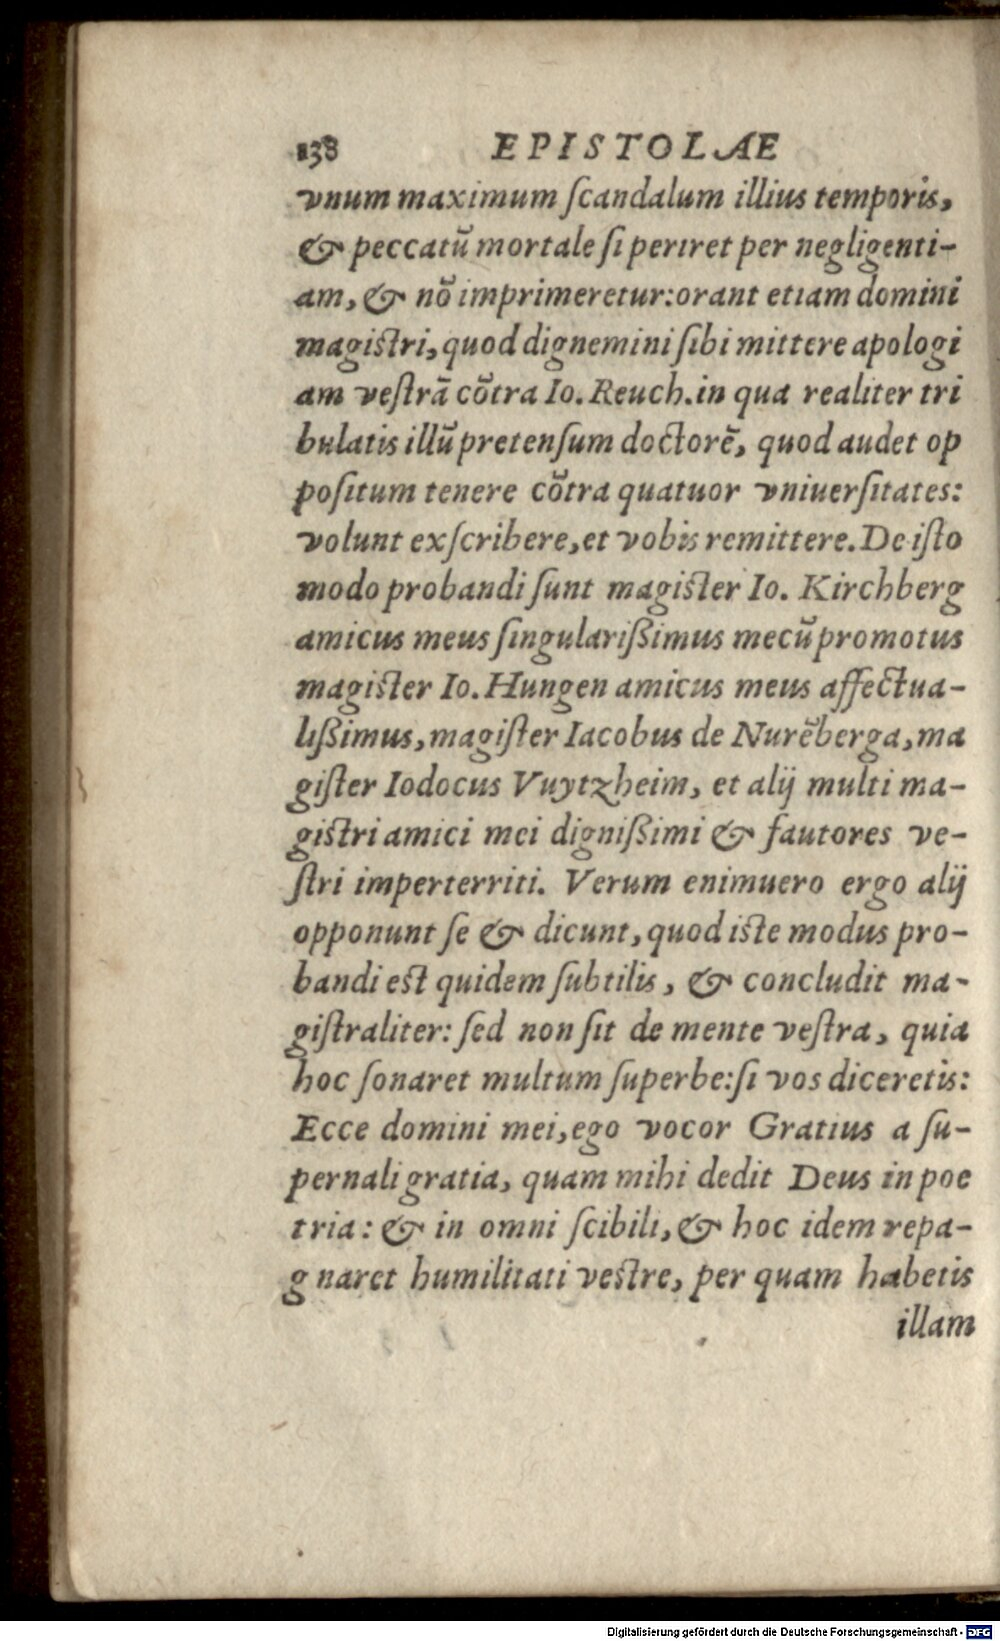 138 EPISTOLAE
vnum maximum ſcandalum illius temporis,
& peccatū mortale ſi periret per negligenti-
am, & nō imprimeretur: orant etiam domini
magiſtri, quod dignemini ſibi mittere apologi
am veſtrā cōtra Io. Reuch. in qua realiter tri
bulatis illū pretenſum doctorē, quod audet op
poſitum tenere cōtra quatuor vniuerſitates:
volunt exſcribere, et vobis remittere. De iſto
modo probandi ſunt magiſter Io. Kirchberg
amicus meus ſingulariſſimus mecū promotus
magiſter Io. Hungen amicus meus affectua-
liſſimus, magiſter Iacobus de Nurēberga, ma
giſter Iodocus Vuytzheim, et alij multi ma-
giſtri amici mei digniſſimi & fautores ve-
ſtri imperterriti. Verum enimuero ergo alij
opponunt ſe & dicunt, quod iſte modus pro-
bandi eſt quidem ſubtilis, & concludit ma-
giſtraliter: ſed non ſit de mente veſtra, quia
hoc ſonaret multum ſuperbe: ſi vos diceretis:
Ecce domini mei, ego vocor Gratius a ſu-
pernali gratia, quam mihi dedit Deus in poe
tria: & in omni ſcibili, & hoc idem repa-
g naret humilitati veſtre, per quam habetis
illam
Digitalisierung gefördert durch die Deutsche Forschungsgemeinschaft - DFG